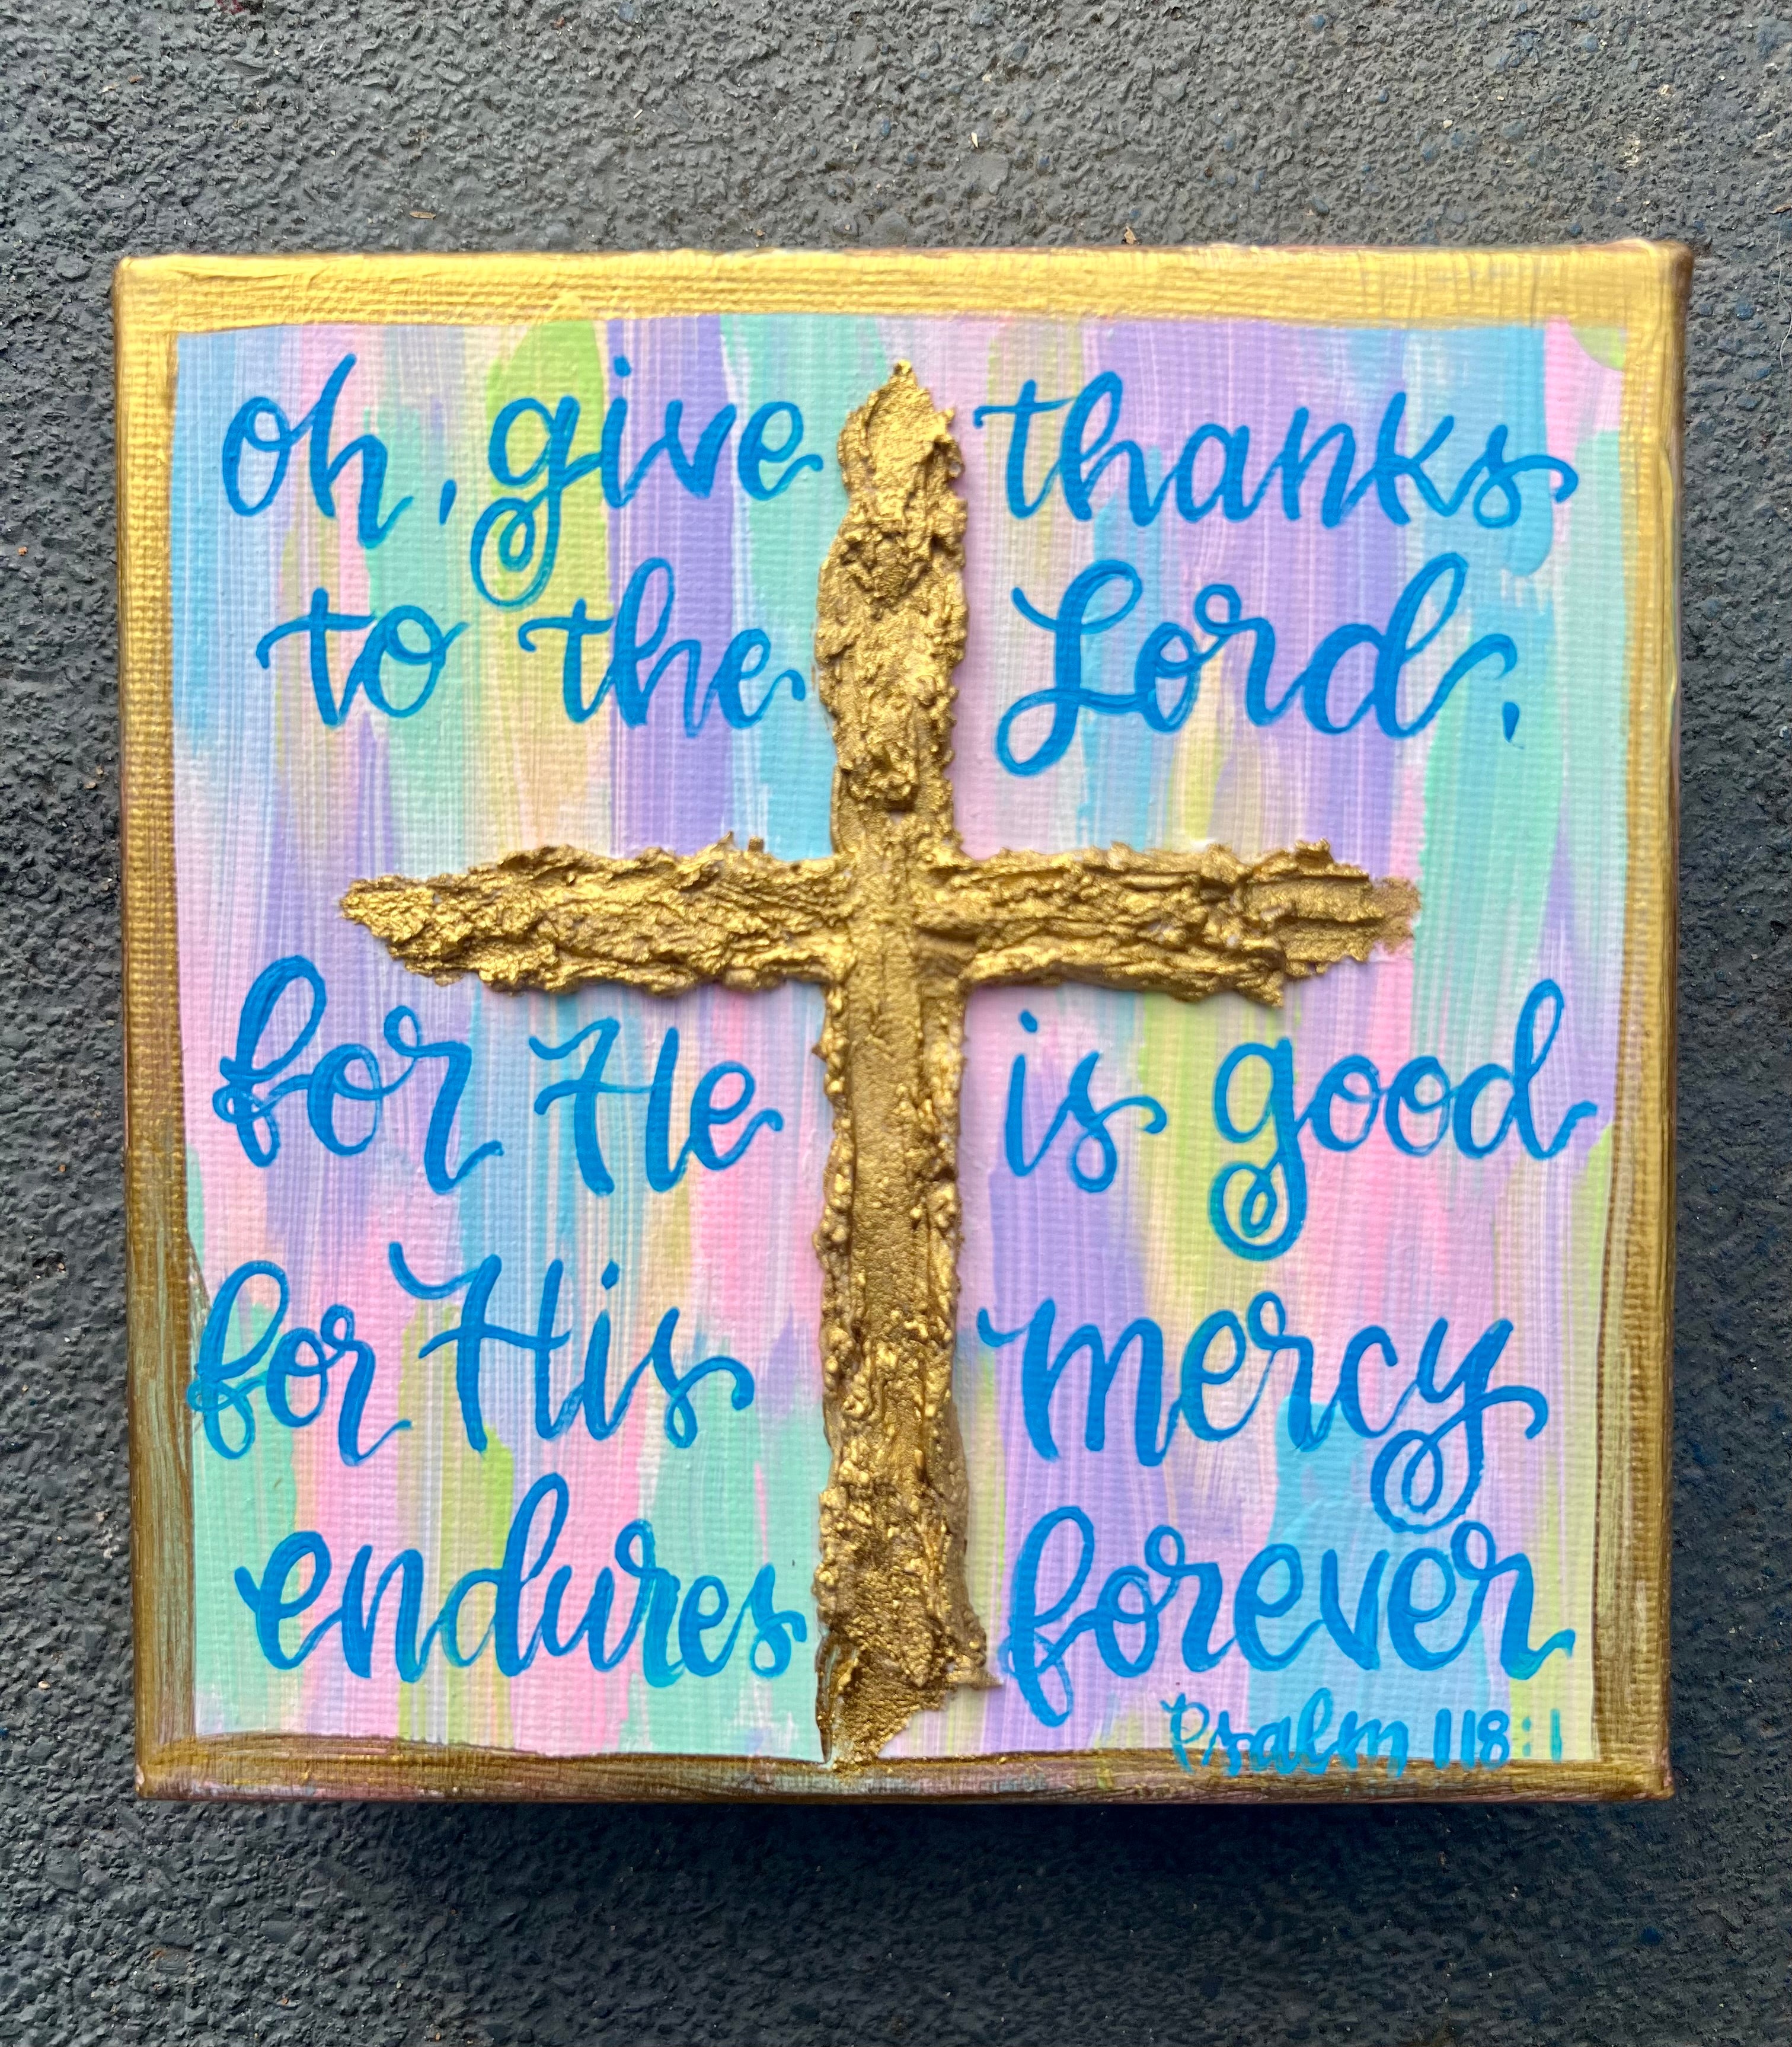 oh, give thanks
to the Lord,
for He is good
for His mercy
endures forever
Psalm 118:1